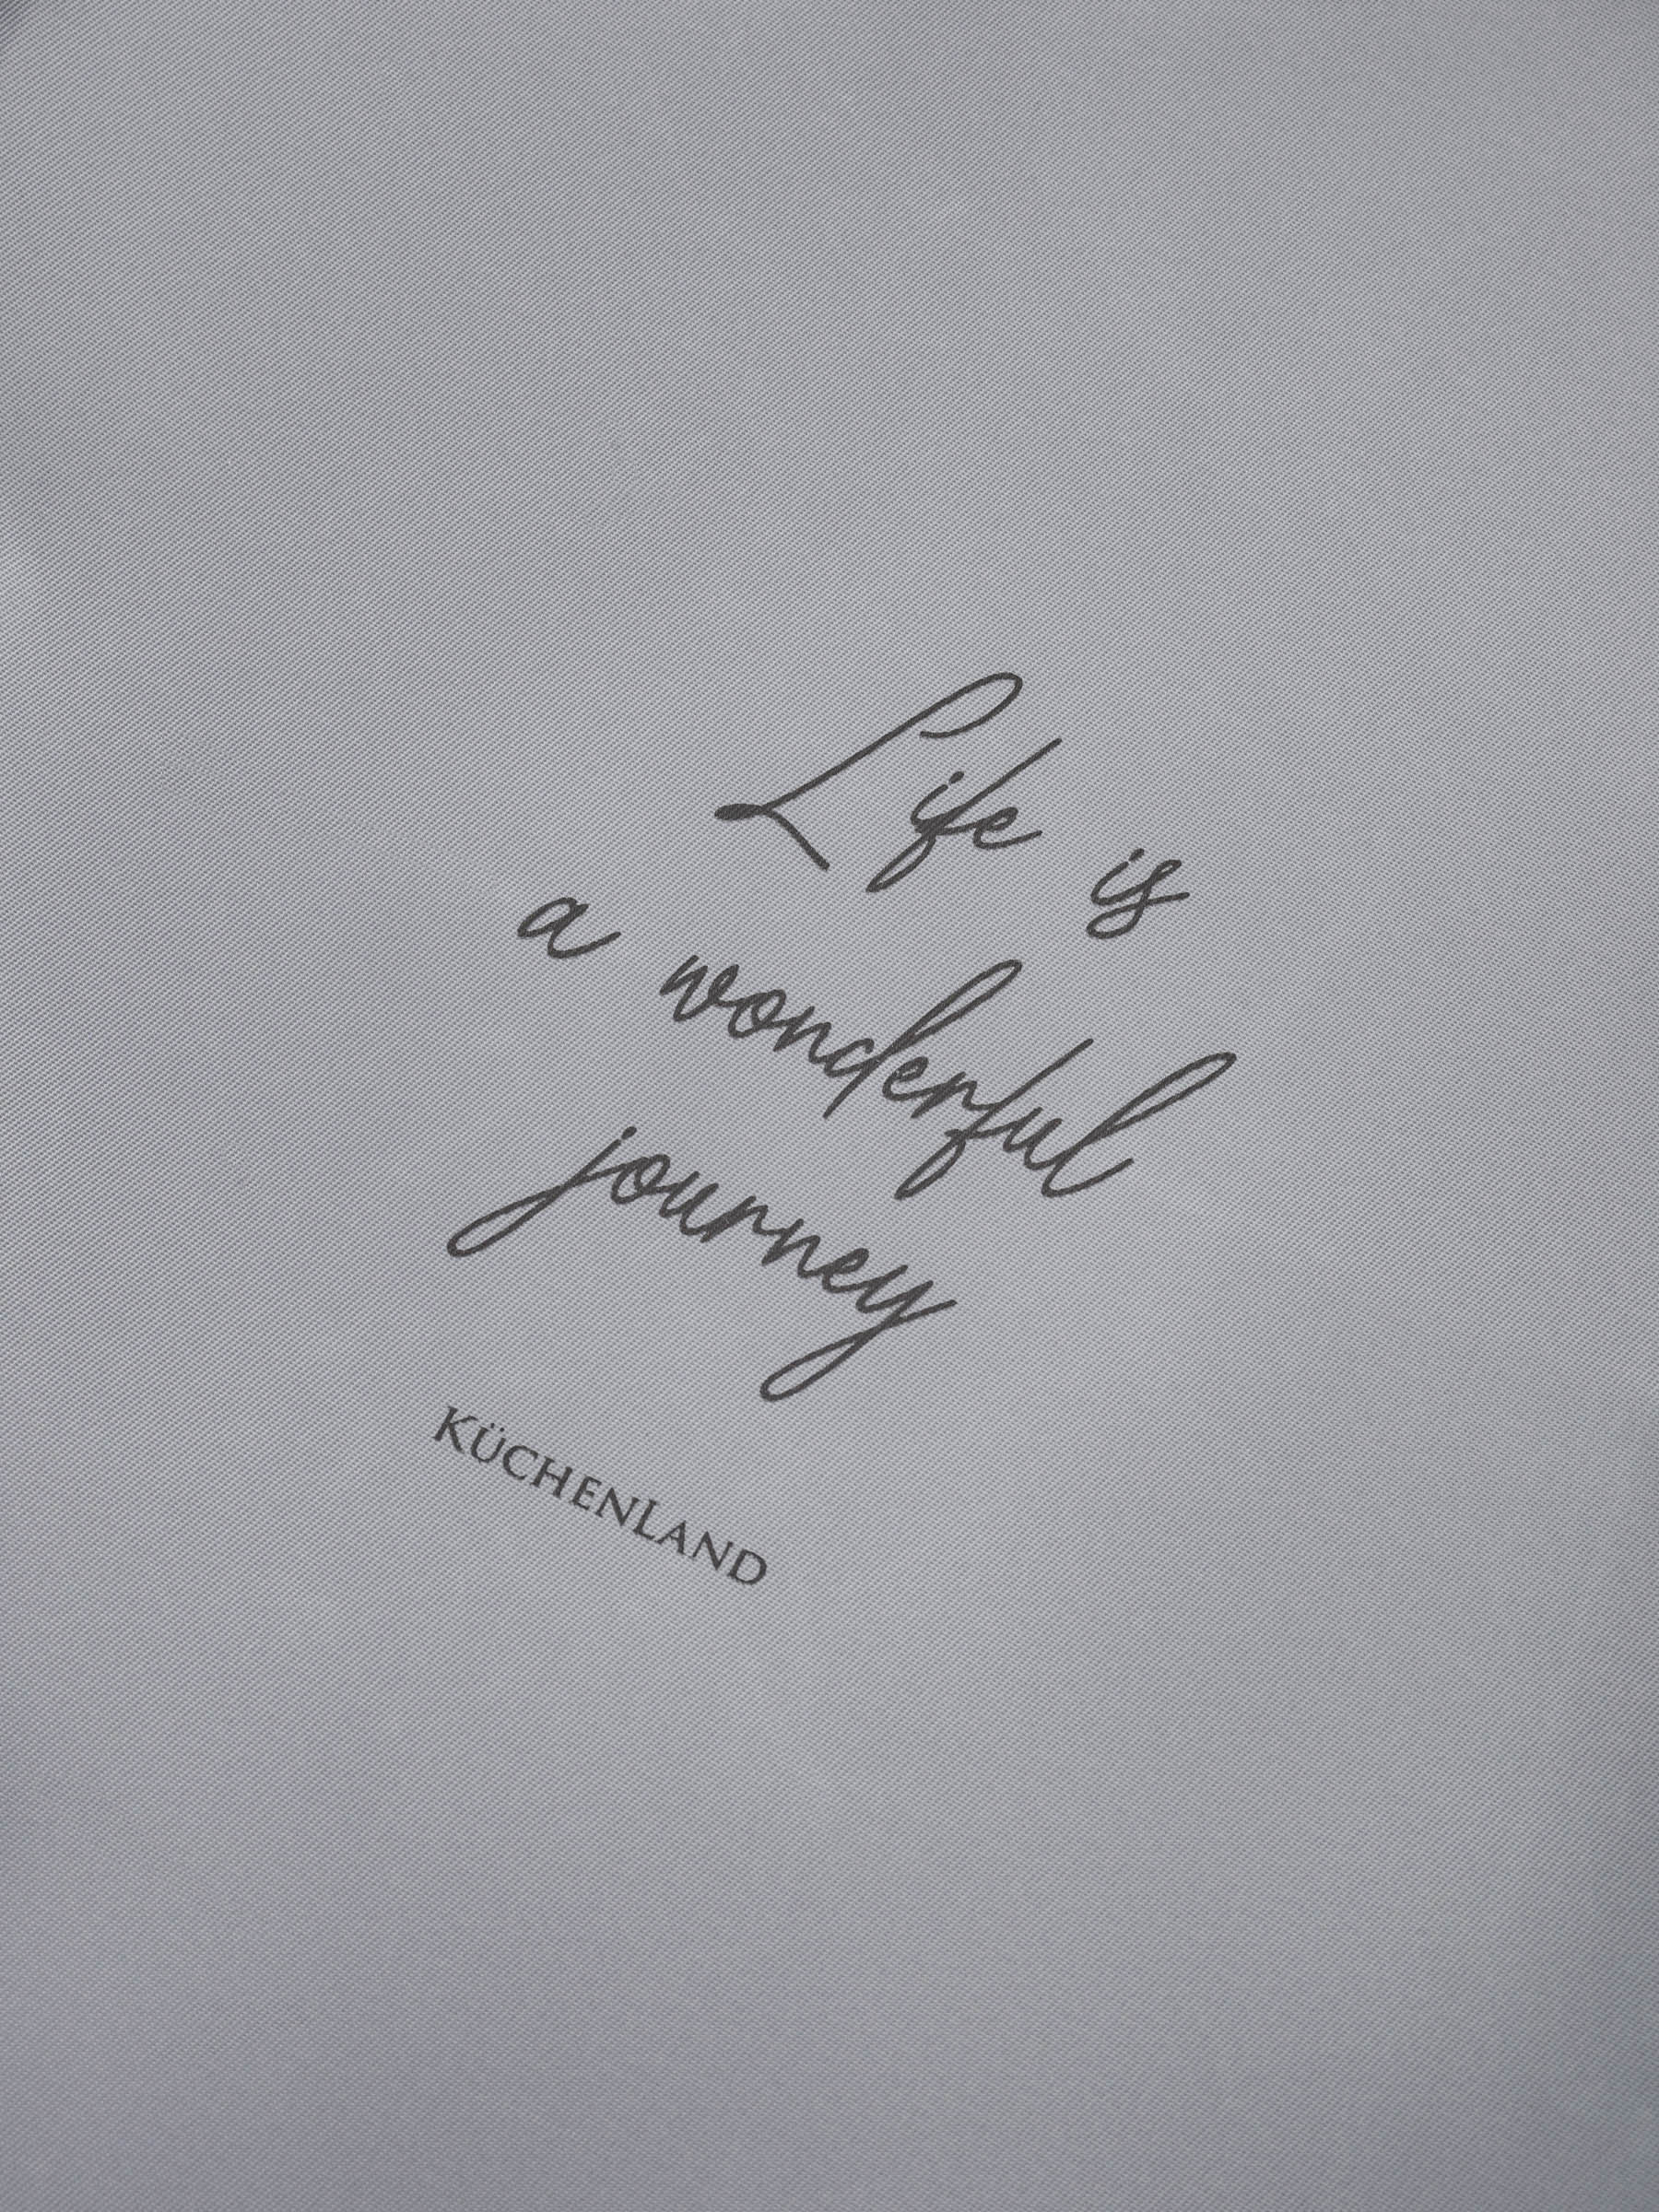 Life is
a wonderful
journey
KÜCHENLAND